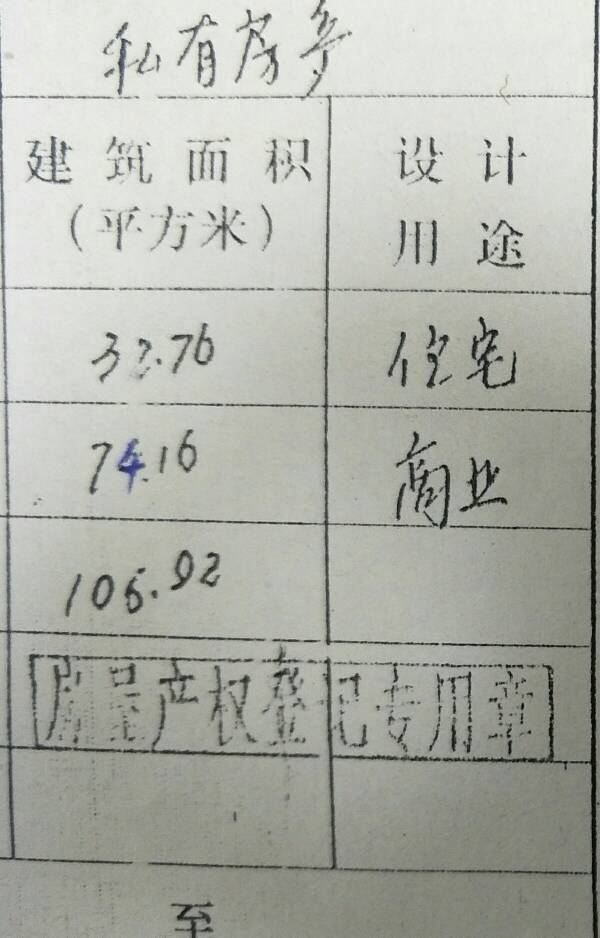 私有房产
建筑面积
(平方米)
设计
用途
32.76
住宅
74.16
商业
106.92
房屋产权登记专用章
至